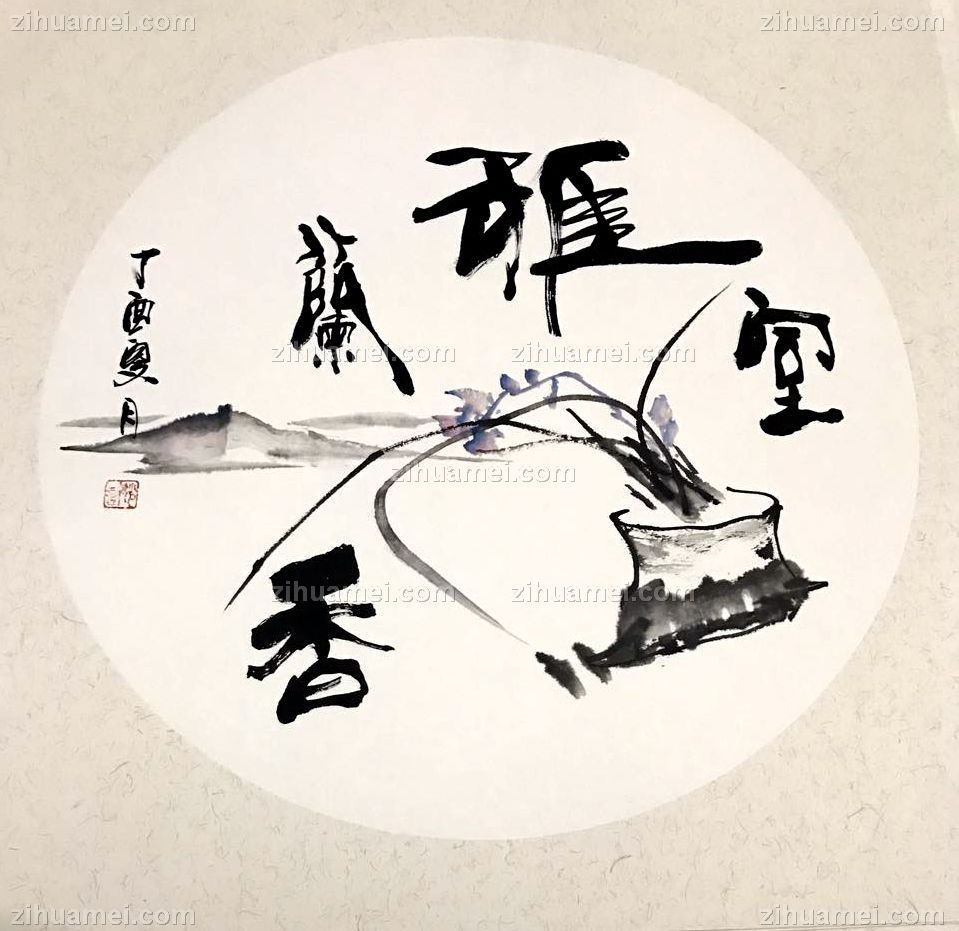 zihuamei.com zihuamei.com
室
雅
蘭
香
丁酉夏月
zihuamei.com zihuamei.com
zihuamei.com
zihuamei.com zihuamei.com
zihuamei.com zihuamei.com